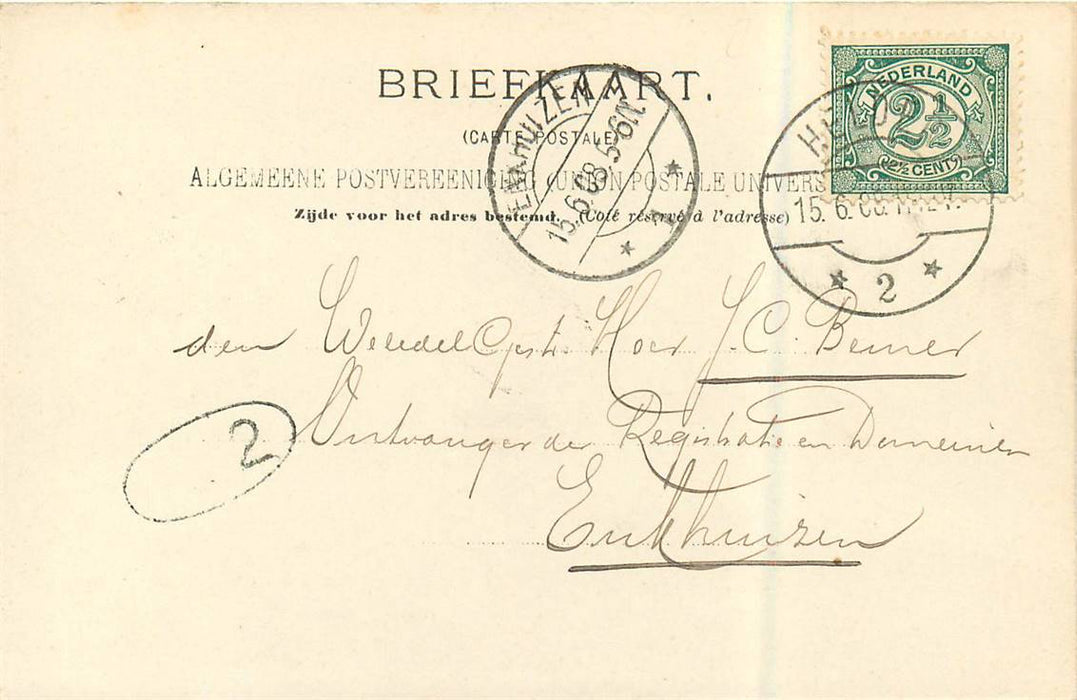 BRIEFKAART.
(CARTE POSTALE)
ALGEMEENE POSTVEREENIGING (UNION POSTALE UNIVERS
Zijde voor het adres bestemd. (Coté réservé à l'adresse)
NEDERLAND
2½
2½ CENT
ENKHUIZEN
15.6.08.5-6N
2
15.6.08.
2
den WelEdelGestr. Heer J.C. Bemer
Ontvanger der Registratie en Domeinen
Enkhuizen
2